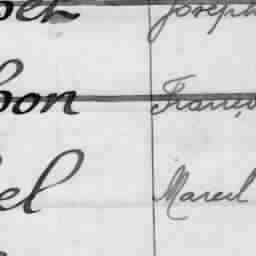 Joseph
bon Franço
el Marcel